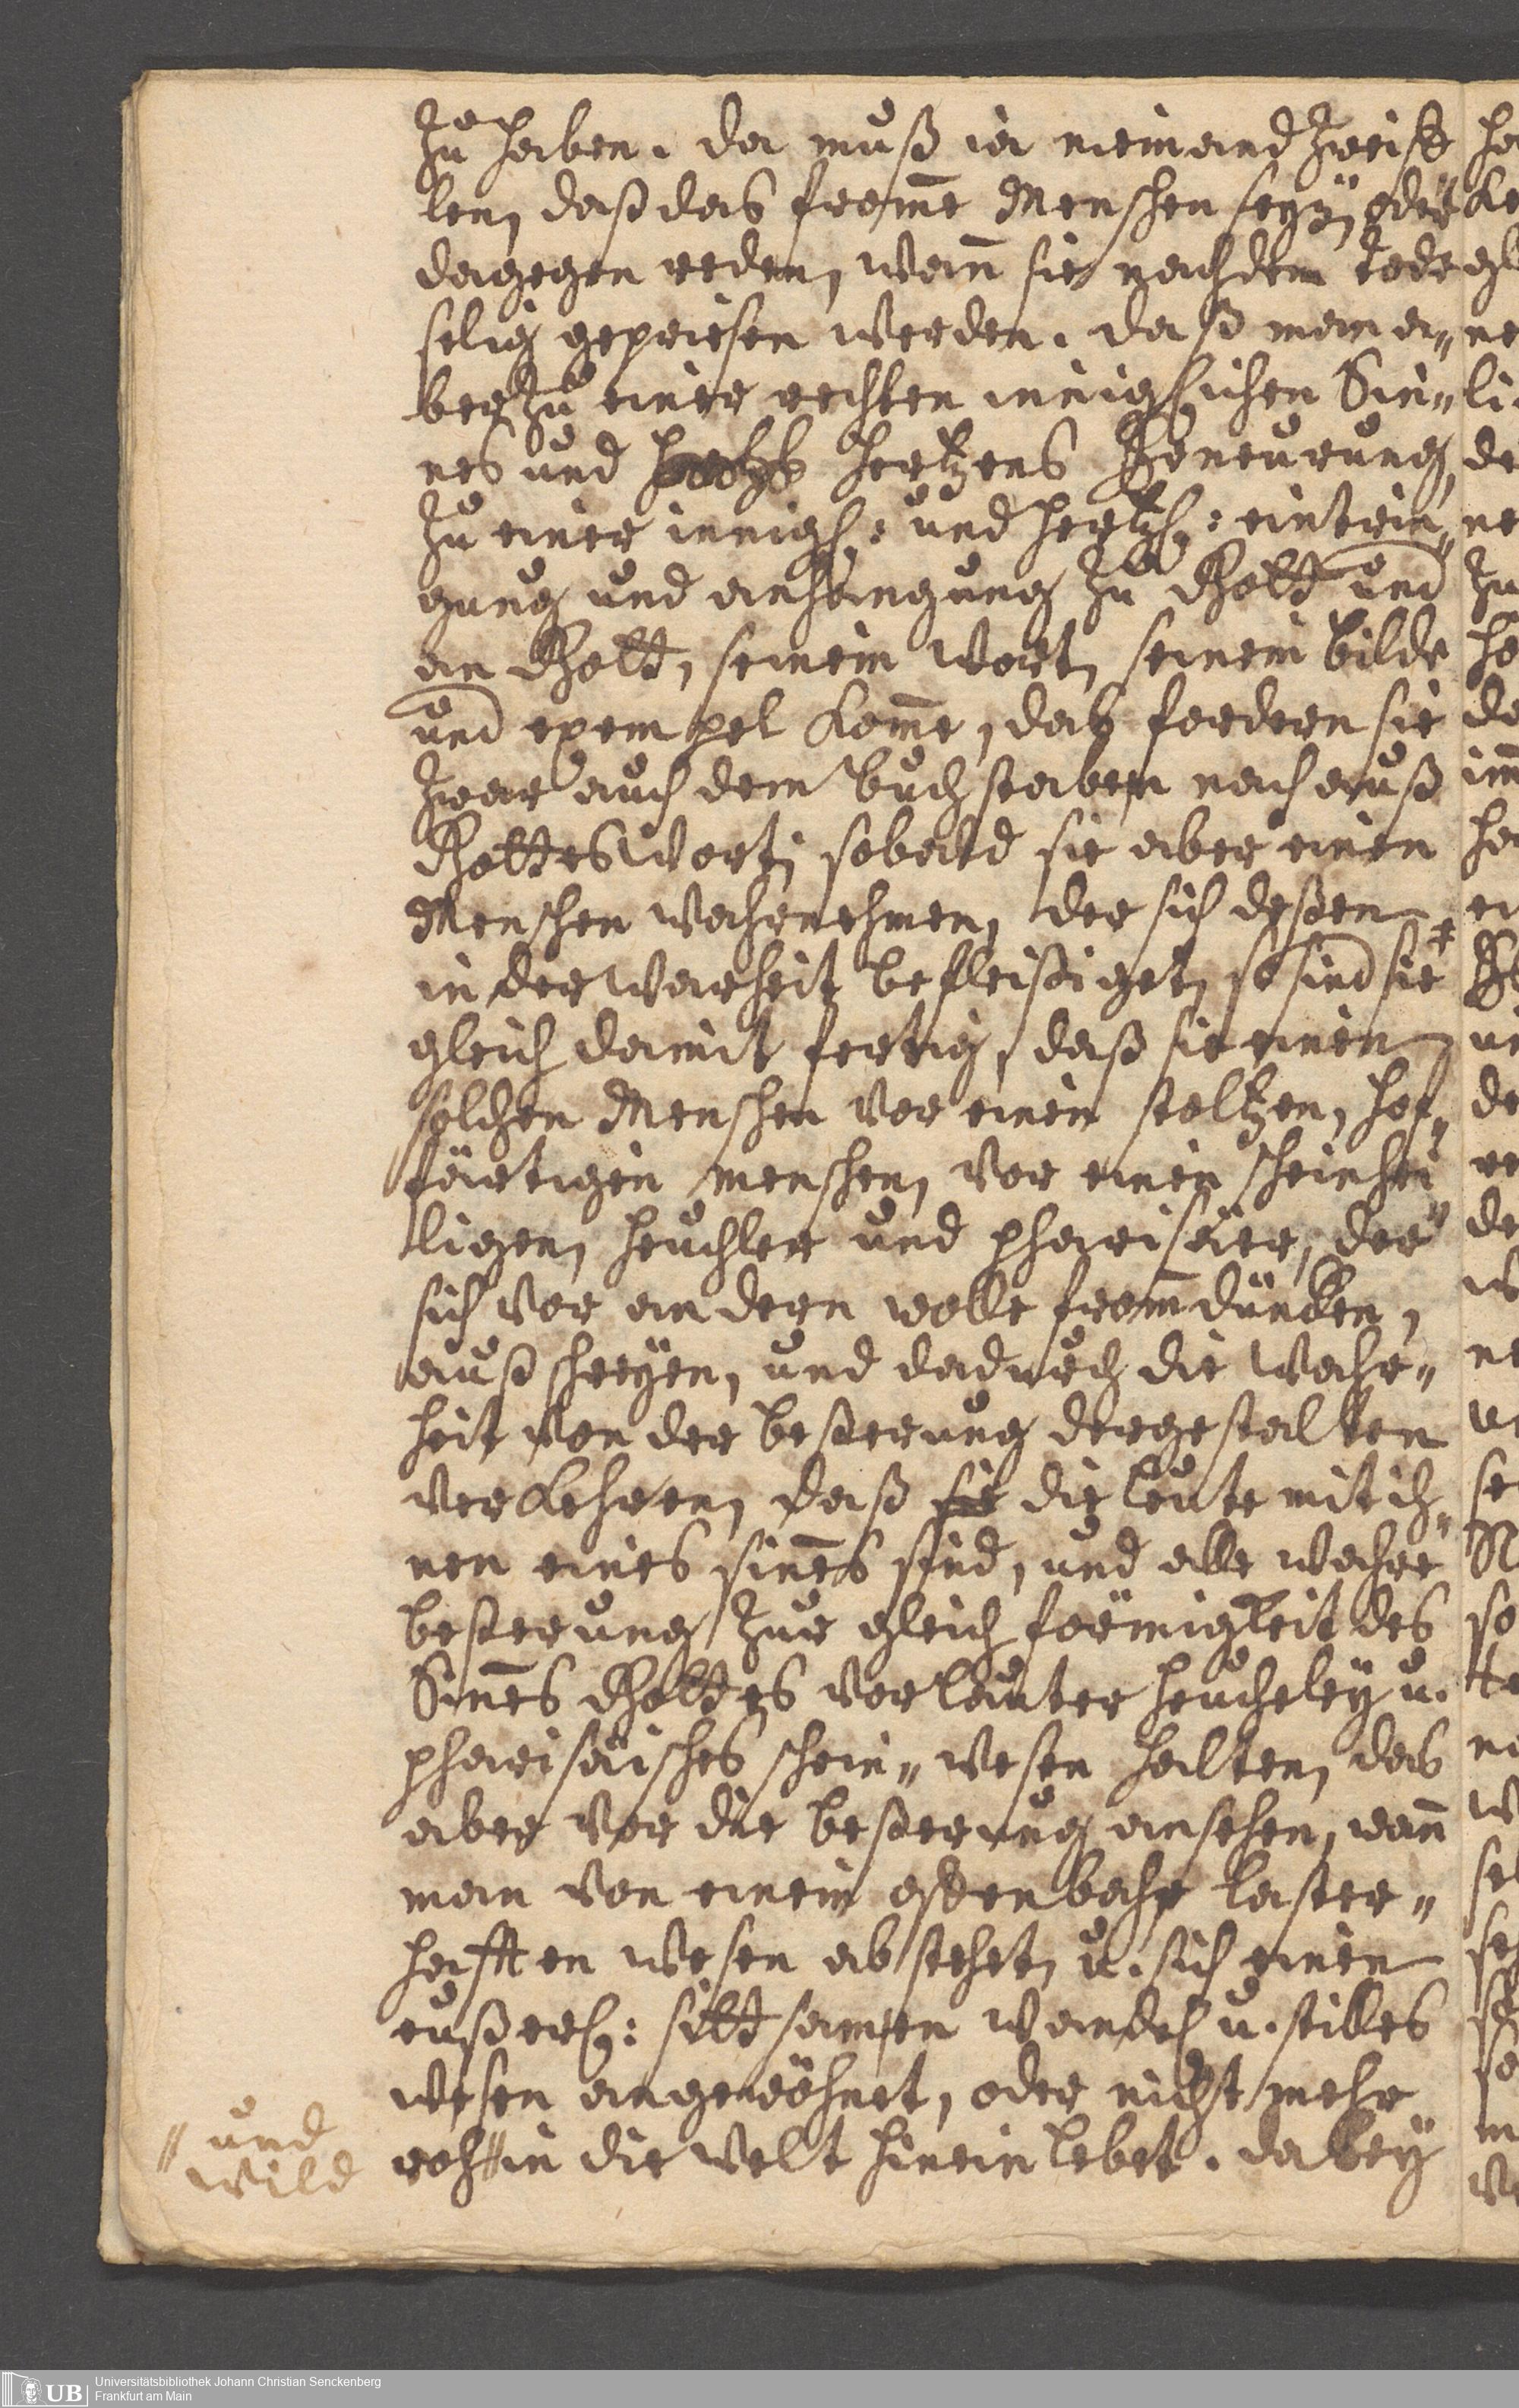 zu haben. da muß ja niemand zweiff
len, daß das from̄e Menschen seyn, oder
dagegen reden, wan̄ sie nach dem tode
selig gepriesen werden. daß man a„
ber zu einer rechten inniglichen Sin„
nes und Hertzens Erneurung,
zu einer innigl: und hertzl: eintrin„
gung und anhangung zu Gott und
an Gott, seinem wort, seinem bilde
und exempel kom̄e, das fordern sie
zwar auch dem buchstaben nach auß
Gottes wort; sobald sie aber einen
Menschen wahrnehmen, der sich deßen
in der warheit befleißiget, so sind sie
gleich damit fertig, daß sie einen
solchen Menschen vor einen stoltzen, hof„
färtigen menschen, vor einen scheinhei„
ligen, heuchler und pharisäer, der
sich vor andern wolle from̄ düncken,
außschreyen, und dadurch die wahr„
heit von der beßerung dergestalten
verkehren, daß sie die leute mit ih„
nen eines sin̄es sind, und alle wahre
beßerung zur gleichförmigkeit des
Sin̄es Gottes vor lauter heucheley u.
pharisäisches schein„wesen halten, das
aber vor die beßerung ansehen, wan̄
man von einem offenbahr laster„
hafften wesen abstehet, u. sich einen
eußerl: sittsamen wandel u. stilles
wesen angewöhnet, oder nicht mehr
roh in die welt hinein lebet. dabey
„ und
wild
Universitätsbibliothek Johann Christian Senckenberg
Frankfurt am Main
UB